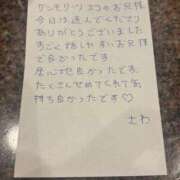 ワンモワーツ ココのお兄様
今日は選んでくださり
ありがとうございました
すごく話しやすいお兄様
で良かったです
居心地良かったです
たくさんせめてくれて気
持ち良かったです♡
さわ